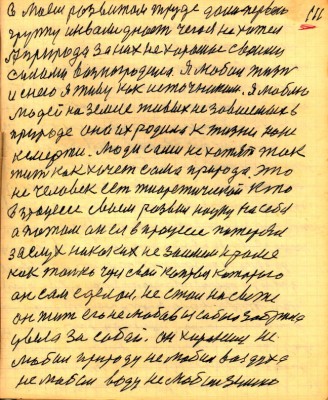 в моем развитом труде дали первую
группу инвалидности чего я не хотел
природа за них не хорошие своими
силами возродила. Я люблю
и с него я живу как источником. Я люблю
людей на земле живых не зависимых в
природе она их родила к жизни, а не
к смерти. Люди сами не хотят так
жить как хочет сама природа. это
не человек есть теоретический кто
в процессе своем развил науку на себя
а потом он ее в процессе потерял
заслуг никаких не занимал кроме
как только чужой которого
он сам сделал, не стал на свете
он жить его не любовь
увела за собой. он не
любил природу не любил воздуха
не любил воду не любил землю